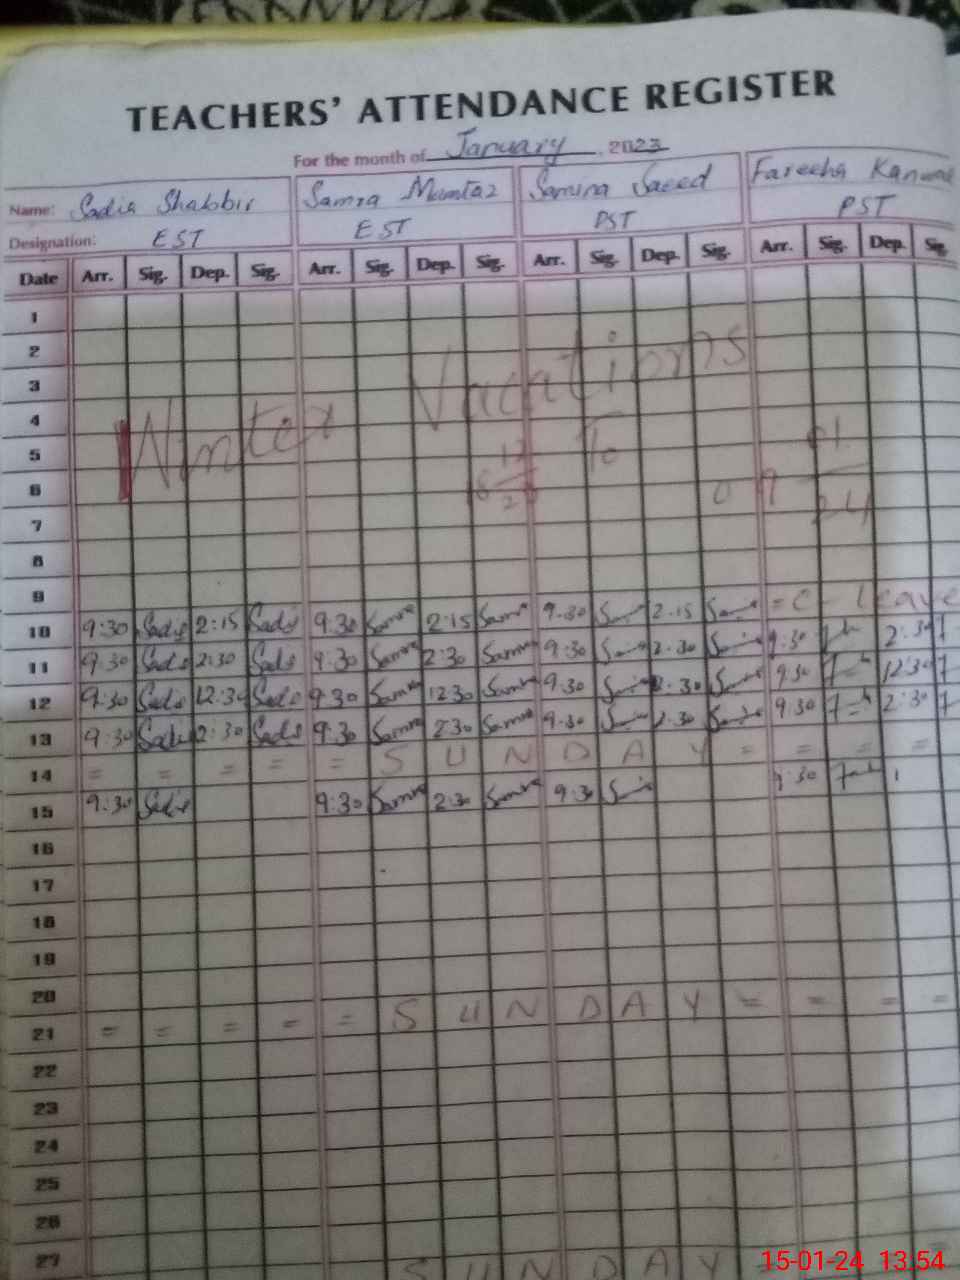 TEACHERS' ATTENDANCE REGISTER
For the month of January, 2023
Name: Sadia Shabbir Samra Mumtaz Samina Saeed Fareeha Kanwal
Designation: EST EST PST PST
Date Arr. Sig. Dep. Sig. Arr. Sig. Dep. Sig. Arr. Sig. Dep. Sig. Arr. Sig. Dep. Sig.
1
2
3
4 Winter Vacations
5 To
6
7
8
9
10 9:30 Sadia 2:15 Sadia 9:30 Samra 2:15 Samra 9:30 2:15 = C - Leave
11 9:30 Sadia 2:30 Sadia 9:30 Samra 2:30 Samra 9:30 2:30 9:30 2:30
12 9:30 Sadia 12:30 Sadia 9:30 Samra 12:30 Samra 9:30 9:30 12:30
13 9:30 Sadia 2:30 Sadia 9:30 Samra 2:30 Samra 9:30 2:30 9:30 2:30
14 = = = = = S U N D A Y = = = =
15 9:30 Sadia 9:30 Samra 2:30 Samra 9:30 9:30
16
17
18
19
20
21 = = = = = S U N D A Y = = = =
22
23
24
25
26
27
S U N D A Y
15-01-24 13:54